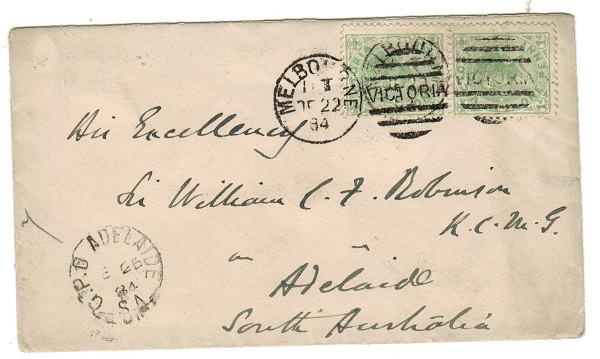 MELBOURNE
DE 22
84
VICTORIA
VICTORIA
His Excellency
Sir William C. F. Robinson
K.C.M.G.
Adelaide
South Australia
G.P.O ADELAIDE
26
84
S.A